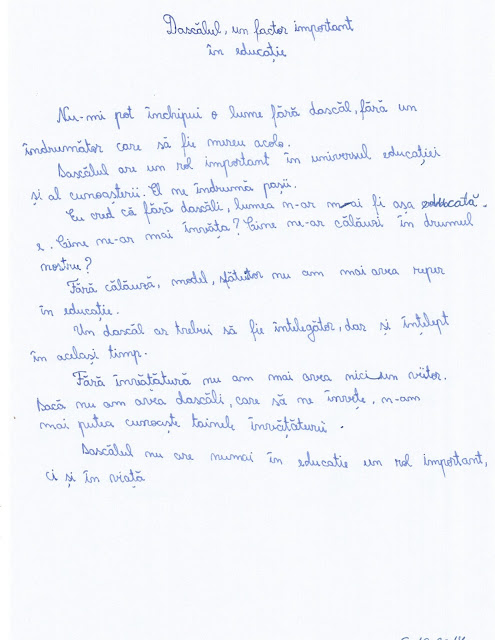 Dascălul, un factor important
în educație
Nu-mi pot închipui o lume fără dascăl, fără un
îndrumător care să fie mereu acolo.
Dascălul are un rol important în universul educației
și al cunoașterii. El ne îndrumă pașii.
Eu cred că fără dascăli, lumea n-ar mai fi așa educată
e. Cine ne-ar mai învăța? Cine ne-ar călăuzi în drumul
nostru?
Fără călăuză, model, sfătuitor nu am mai avea reper
în educație.
Un dascăl ar trebui să fie înțelegător, dar și înțelept
în același timp.
Fără învățătură nu am mai avea nici un viitor.
Dacă nu am avea dascăli, care să ne învețe, n-am
mai putea cunoaște tainele învățăturii.
Dascălul nu are numai în educatie un rol important,
ci și în viață